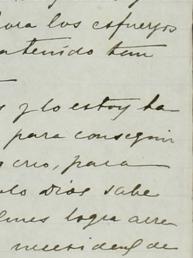 los esfuerzos
tenido tan
y lo estoy ha
para conseguir
creo, para
olo Dios sabe
logra
necesidad de